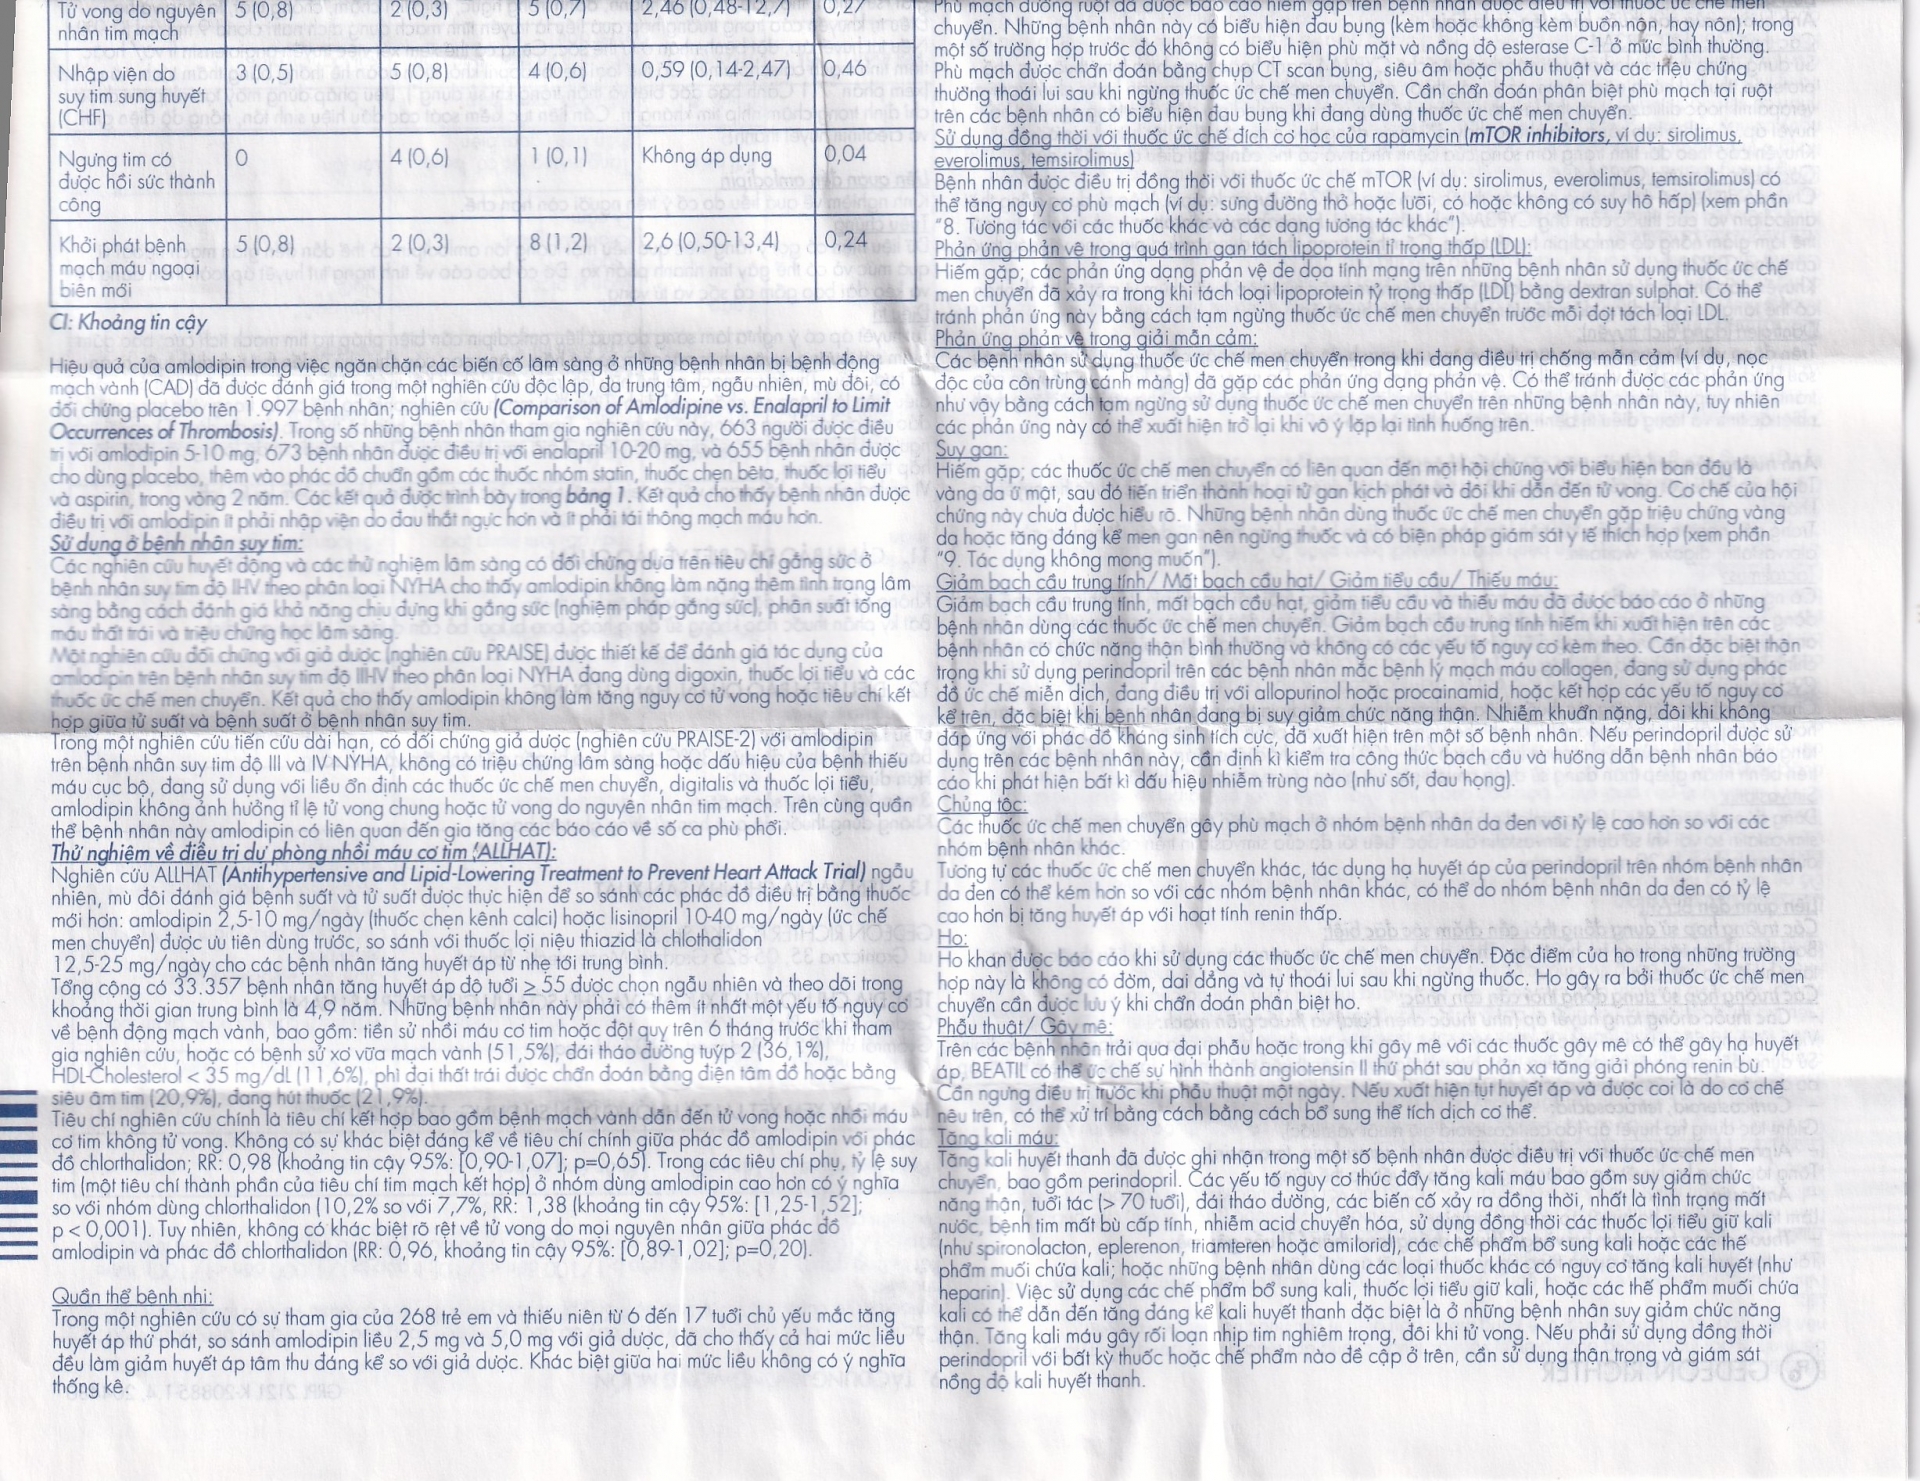 Tử vong do nguyên nhân tim mạch 5 (0,8) 2 (0,3) 5 (0,7) 2,46 (0,48-12,7) 0,27
Nhập viện do suy tim sung huyết (CHF) 3 (0,5) 5 (0,8) 4 (0,6) 0,59 (0,14-2,47) 0,46
Ngưng tim có được hồi sức thành công 0 4 (0,6) 1 (0,1) Không áp dụng 0,04
Khởi phát bệnh mạch máu ngoại biên mới 5 (0,8) 2 (0,3) 8 (1,2) 2,6 (0,50-13,4) 0,24
CI: Khoảng tin cậy
Hiệu quả của amlodipin trong việc ngăn chặn các biến cố lâm sàng ở những bệnh nhân bị bệnh động
mạch vành (CAD) đã được đánh giá trong một nghiên cứu độc lập, đa trung tâm, ngẫu nhiên, mù đôi, có
đối chứng placebo trên 1.997 bệnh nhân; nghiên cứu (Comparison of Amlodipine vs. Enalapril to Limit
Occurrences of Thrombosis). Trong số những bệnh nhân tham gia nghiên cứu này, 663 người được điều
trị với amlodipin 5-10 mg, 673 bệnh nhân được điều trị với enalapril 10-20 mg, và 655 bệnh nhân được
cho dùng placebo, thêm vào phác đồ chuẩn gồm các thuốc nhóm statin, thuốc chẹn bêta, thuốc lợi tiểu
và aspirin, trong vòng 2 năm. Các kết quả được trình bày trong bảng 1. Kết quả cho thấy bệnh nhân được
điều trị với amlodipin ít phải nhập viện do đau thắt ngực hơn và ít phải tái thông mạch máu hơn.
Sử dụng ở bệnh nhân suy tim:
Các nghiên cứu huyết động và các thử nghiệm lâm sàng có đối chứng dựa trên tiêu chí gắng sức ở
bệnh nhân suy tim độ II-IV theo phân loại NYHA cho thấy amlodipin không làm nặng thêm tình trạng lâm
sàng bằng cách đánh giá khả năng chịu đựng khi gắng sức (nghiệm pháp gắng sức), phân suất tống
máu thất trái và triệu chứng học lâm sàng.
Một nghiên cứu đối chứng với giả dược (nghiên cứu PRAISE) được thiết kế để đánh giá tác dụng của
amlodipin trên bệnh nhân suy tim độ III-IV theo phân loại NYHA đang dùng digoxin, thuốc lợi tiểu và các
thuốc ức chế men chuyển. Kết quả cho thấy amlodipin không làm tăng nguy cơ tử vong hoặc tiêu chí kết
hợp giữa tử suất và bệnh suất ở bệnh nhân suy tim.
Trong một nghiên cứu tiến cứu dài hạn, có đối chứng giả dược (nghiên cứu PRAISE-2) với amlodipin
trên bệnh nhân suy tim độ III và IV NYHA, không có triệu chứng lâm sàng hoặc dấu hiệu của bệnh thiếu
máu cục bộ, đang sử dụng với liều ổn định các thuốc ức chế men chuyển, digitalis và thuốc lợi tiểu,
amlodipin không ảnh hưởng tỉ lệ tử vong chung hoặc tử vong do nguyên nhân tim mạch. Trên cùng quần
thể bệnh nhân này amlodipin có liên quan đến gia tăng các báo cáo về số ca phù phổi.
Thử nghiệm về điều trị dự phòng nhồi máu cơ tim (ALLHAT):
Nghiên cứu ALLHAT (Antihypertensive and Lipid-Lowering Treatment to Prevent Heart Attack Trial) ngẫu
nhiên, mù đôi đánh giá bệnh suất và tử suất được thực hiện để so sánh các phác đồ điều trị bằng thuốc
mới hơn: amlodipin 2,5-10 mg/ngày (thuốc chẹn kênh calci) hoặc lisinopril 10-40 mg/ngày (ức chế
men chuyển) được ưu tiên dùng trước, so sánh với thuốc lợi niệu thiazid là chlothalidon
12,5-25 mg/ngày cho các bệnh nhân tăng huyết áp từ nhẹ tới trung bình.
Tổng cộng có 33.357 bệnh nhân tăng huyết áp độ tuổi ≥ 55 được chọn ngẫu nhiên và theo dõi trong
khoảng thời gian trung bình là 4,9 năm. Những bệnh nhân này phải có thêm ít nhất một yếu tố nguy cơ
về bệnh động mạch vành, bao gồm: tiền sử nhồi máu cơ tim hoặc đột quỵ trên 6 tháng trước khi tham
gia nghiên cứu, hoặc có bệnh sử xơ vữa mạch vành (51,5%), đái tháo đường tuýp 2 (36,1%),
HDL-Cholesterol < 35 mg/dL (11,6%), phì đại thất trái được chẩn đoán bằng điện tâm đồ hoặc bằng
siêu âm tim (20,9%), đang hút thuốc (21,9%).
Tiêu chí nghiên cứu chính là tiêu chí kết hợp bao gồm bệnh mạch vành dẫn đến tử vong hoặc nhồi máu
cơ tim không tử vong. Không có sự khác biệt đáng kể về tiêu chí chính giữa phác đồ amlodipin với phác
đồ chlorthalidon; RR: 0,98 (khoảng tin cậy 95%: [0,90-1,07]; p=0,65). Trong các tiêu chí phụ, tỷ lệ suy
tim (một tiêu chí thành phần của tiêu chí tim mạch kết hợp) ở nhóm dùng amlodipin cao hơn có ý nghĩa
so với nhóm dùng chlorthalidon (10,2% so với 7,7%, RR: 1,38 (khoảng tin cậy 95%: [1,25-1,52];
p < 0,001). Tuy nhiên, không có khác biệt rõ rệt về tử vong do mọi nguyên nhân giữa phác đồ
amlodipin và phác đồ chlorthalidon (RR: 0,96, khoảng tin cậy 95%: [0,89-1,02]; p=0,20).
Quần thể bệnh nhi:
Trong một nghiên cứu có sự tham gia của 268 trẻ em và thiếu niên từ 6 đến 17 tuổi chủ yếu mắc tăng
huyết áp thứ phát, so sánh amlodipin liều 2,5 mg và 5,0 mg với giả dược, đã cho thấy cả hai mức liều
đều làm giảm huyết áp tâm thu đáng kể so với giả dược. Khác biệt giữa hai mức liều không có ý nghĩa
thống kê.
Phù mạch đường ruột đã được báo cáo hiếm gặp trên bệnh nhân được điều trị với thuốc ức chế men
chuyển. Những bệnh nhân này có biểu hiện đau bụng (kèm hoặc không kèm buồn nôn, hay nôn); trong
một số trường hợp trước đó không có biểu hiện phù mặt và nồng độ esterase C-1 ở mức bình thường.
Phù mạch được chẩn đoán bằng chụp CT scan bụng, siêu âm hoặc phẫu thuật và các triệu chứng
thường thoái lui sau khi ngừng thuốc ức chế men chuyển. Cần chẩn đoán phân biệt phù mạch tại ruột
trên các bệnh nhân có biểu hiện đau bụng khi đang dùng thuốc ức chế men chuyển.
Sử dụng đồng thời với thuốc ức chế đích cơ học của rapamycin (mTOR inhibitors, ví dụ: sirolimus,
everolimus, temsirolimus)
Bệnh nhân được điều trị đồng thời với thuốc ức chế mTOR (ví dụ: sirolimus, everolimus, temsirolimus) có
thể tăng nguy cơ phù mạch (ví dụ: sưng đường thở hoặc lưỡi, có hoặc không có suy hô hấp) (xem phần
"8. Tương tác với các thuốc khác và các dạng tương tác khác").
Phản ứng phản vệ trong quá trình gạn tách lipoprotein tỉ trọng thấp (LDL):
Hiếm gặp; các phản ứng dạng phản vệ đe dọa tính mạng trên những bệnh nhân sử dụng thuốc ức chế
men chuyển đã xảy ra trong khi tách loại lipoprotein tỷ trọng thấp (LDL) bằng dextran sulphat. Có thể
tránh phản ứng này bằng cách tạm ngừng thuốc ức chế men chuyển trước mỗi đợt tách loại LDL.
Phản ứng phản vệ trong giải mẫn cảm:
Các bệnh nhân sử dụng thuốc ức chế men chuyển trong khi đang điều trị chống mẫn cảm (ví dụ, nọc
độc của côn trùng cánh màng) đã gặp các phản ứng dạng phản vệ. Có thể tránh được các phản ứng
như vậy bằng cách tạm ngừng sử dụng thuốc ức chế men chuyển trên những bệnh nhân này, tuy nhiên
các phản ứng này có thể xuất hiện trở lại khi vô ý lặp lại tình huống trên.
Suy gan:
Hiếm gặp; các thuốc ức chế men chuyển có liên quan đến một hội chứng với biểu hiện ban đầu là
vàng da ứ mật, sau đó tiến triển thành hoại tử gan kịch phát và đôi khi dẫn đến tử vong. Cơ chế của hội
chứng này chưa được hiểu rõ. Những bệnh nhân dùng thuốc ức chế men chuyển gặp triệu chứng vàng
da hoặc tăng đáng kể men gan nên ngừng thuốc và có biện pháp giám sát y tế thích hợp (xem phần
"9. Tác dụng không mong muốn").
Giảm bạch cầu trung tính/ Mất bạch cầu hạt/ Giảm tiểu cầu/ Thiếu máu:
Giảm bạch cầu trung tính, mất bạch cầu hạt, giảm tiểu cầu và thiếu máu đã được báo cáo ở những
bệnh nhân dùng các thuốc ức chế men chuyển. Giảm bạch cầu trung tính hiếm khi xuất hiện trên các
bệnh nhân có chức năng thận bình thường và không có các yếu tố nguy cơ kèm theo. Cần đặc biệt thận
trọng khi sử dụng perindopril trên các bệnh nhân mắc bệnh lý mạch máu collagen, đang sử dụng phác
đồ ức chế miễn dịch, đang điều trị với allopurinol hoặc procainamid, hoặc kết hợp các yếu tố nguy cơ
kể trên, đặc biệt khi bệnh nhân đang bị suy giảm chức năng thận. Nhiễm khuẩn nặng, đôi khi không
đáp ứng với phác đồ kháng sinh tích cực, đã xuất hiện trên một số bệnh nhân. Nếu perindopril được sử
dụng trên các bệnh nhân này, cần định kì kiểm tra công thức bạch cầu và hướng dẫn bệnh nhân báo
cáo khi phát hiện bất kì dấu hiệu nhiễm trùng nào (như sốt, đau họng).
Chủng tộc:
Các thuốc ức chế men chuyển gây phù mạch ở nhóm bệnh nhân da đen với tỷ lệ cao hơn so với các
nhóm bệnh nhân khác.
Tương tự các thuốc ức chế men chuyển khác, tác dụng hạ huyết áp của perindopril trên nhóm bệnh nhân
da đen có thể kém hơn so với các nhóm bệnh nhân khác, có thể do nhóm bệnh nhân da đen có tỷ lệ
cao hơn bị tăng huyết áp với hoạt tính renin thấp.
Ho:
Ho khan được báo cáo khi sử dụng các thuốc ức chế men chuyển. Đặc điểm của ho trong những trường
hợp này là không có đờm, dai dẳng và tự thoái lui sau khi ngừng thuốc. Ho gây ra bởi thuốc ức chế men
chuyển cần được lưu ý khi chẩn đoán phân biệt ho.
Phẫu thuật/ Gây mê:
Trên các bệnh nhân trải qua đại phẫu hoặc trong khi gây mê với các thuốc gây mê có thể gây hạ huyết
áp, BEATIL có thể ức chế sự hình thành angiotensin II thứ phát sau phản xạ tăng giải phóng renin bù.
Cần ngưng điều trị trước khi phẫu thuật một ngày. Nếu xuất hiện tụt huyết áp và được coi là do cơ chế
nêu trên, có thể xử trí bằng cách bằng cách bổ sung thể tích dịch cơ thể.
Tăng kali máu:
Tăng kali huyết thanh đã được ghi nhận trong một số bệnh nhân được điều trị với thuốc ức chế men
chuyển, bao gồm perindopril. Các yếu tố nguy cơ thúc đẩy tăng kali máu bao gồm suy giảm chức
năng thận, tuổi tác (> 70 tuổi), đái tháo đường, các biến cố xảy ra đồng thời, nhất là tình trạng mất
nước, bệnh tim mất bù cấp tính, nhiễm acid chuyển hóa, sử dụng đồng thời các thuốc lợi tiểu giữ kali
(như spironolacton, eplerenon, triamteren hoặc amilorid), các chế phẩm bổ sung kali hoặc các thế
phẩm muối chứa kali; hoặc những bệnh nhân dùng các loại thuốc khác có nguy cơ tăng kali huyết (như
heparin). Việc sử dụng các chế phẩm bổ sung kali, thuốc lợi tiểu giữ kali, hoặc các thế phẩm muối chứa
kali có thể dẫn đến tăng đáng kể kali huyết thanh đặc biệt là ở những bệnh nhân suy giảm chức năng
thận. Tăng kali máu gây rối loạn nhịp tim nghiêm trọng, đôi khi tử vong. Nếu phải sử dụng đồng thời
perindopril với bất kỳ thuốc hoặc chế phẩm nào đề cập ở trên, cần sử dụng thận trọng và giám sát
nồng độ kali huyết thanh.